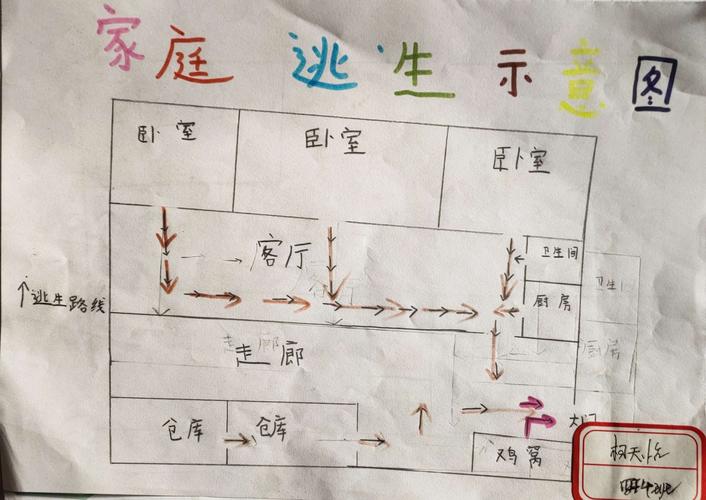 家庭逃生示意图
卧室
卧室
卧室
客厅
卫生间
厨房
↑逃生路线
走廊
卫生
厨房
仓库
仓库
大门
鸡窝